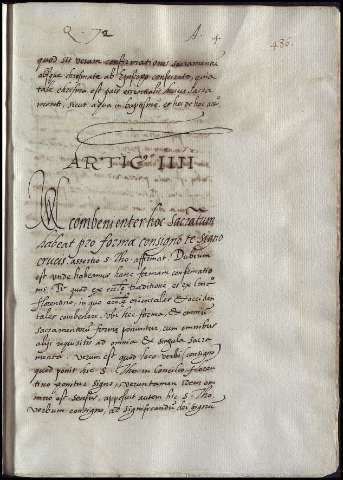 Q. 72 A. 4 436.
quod sit verum confirmationis sacramentū
absque chrismate ab Episcopo consecrato, quia
tale chrisma est pars essentialis huius sacra
menti, sicut aqua in baptismo. et hoc de hoc ar.
ARTIC° IIII
convenienter hoc Sacr̄tum
habeat pro forma consigno te signo
crucis. assertio s. Tho. affirmat. Dubium
est unde habeamus hanc formam confirmatio
nis. quod ex traditione et ex concilio
florentino, in quo orientales et occiden
tales convenere. ubi hec forma, et omniū
sacramentorū forme ponuntur cum omnibus
aliis requisitis ad omnia et singula sacra
menta. verum est quod loco verbi consigno
quod ponit hic s. Tho. in Concilio floren
tino ponitur signo, veruntamen idem om
nino est sensus, apposuit autem hic s. Tho.
verbum consigno, ad significandū